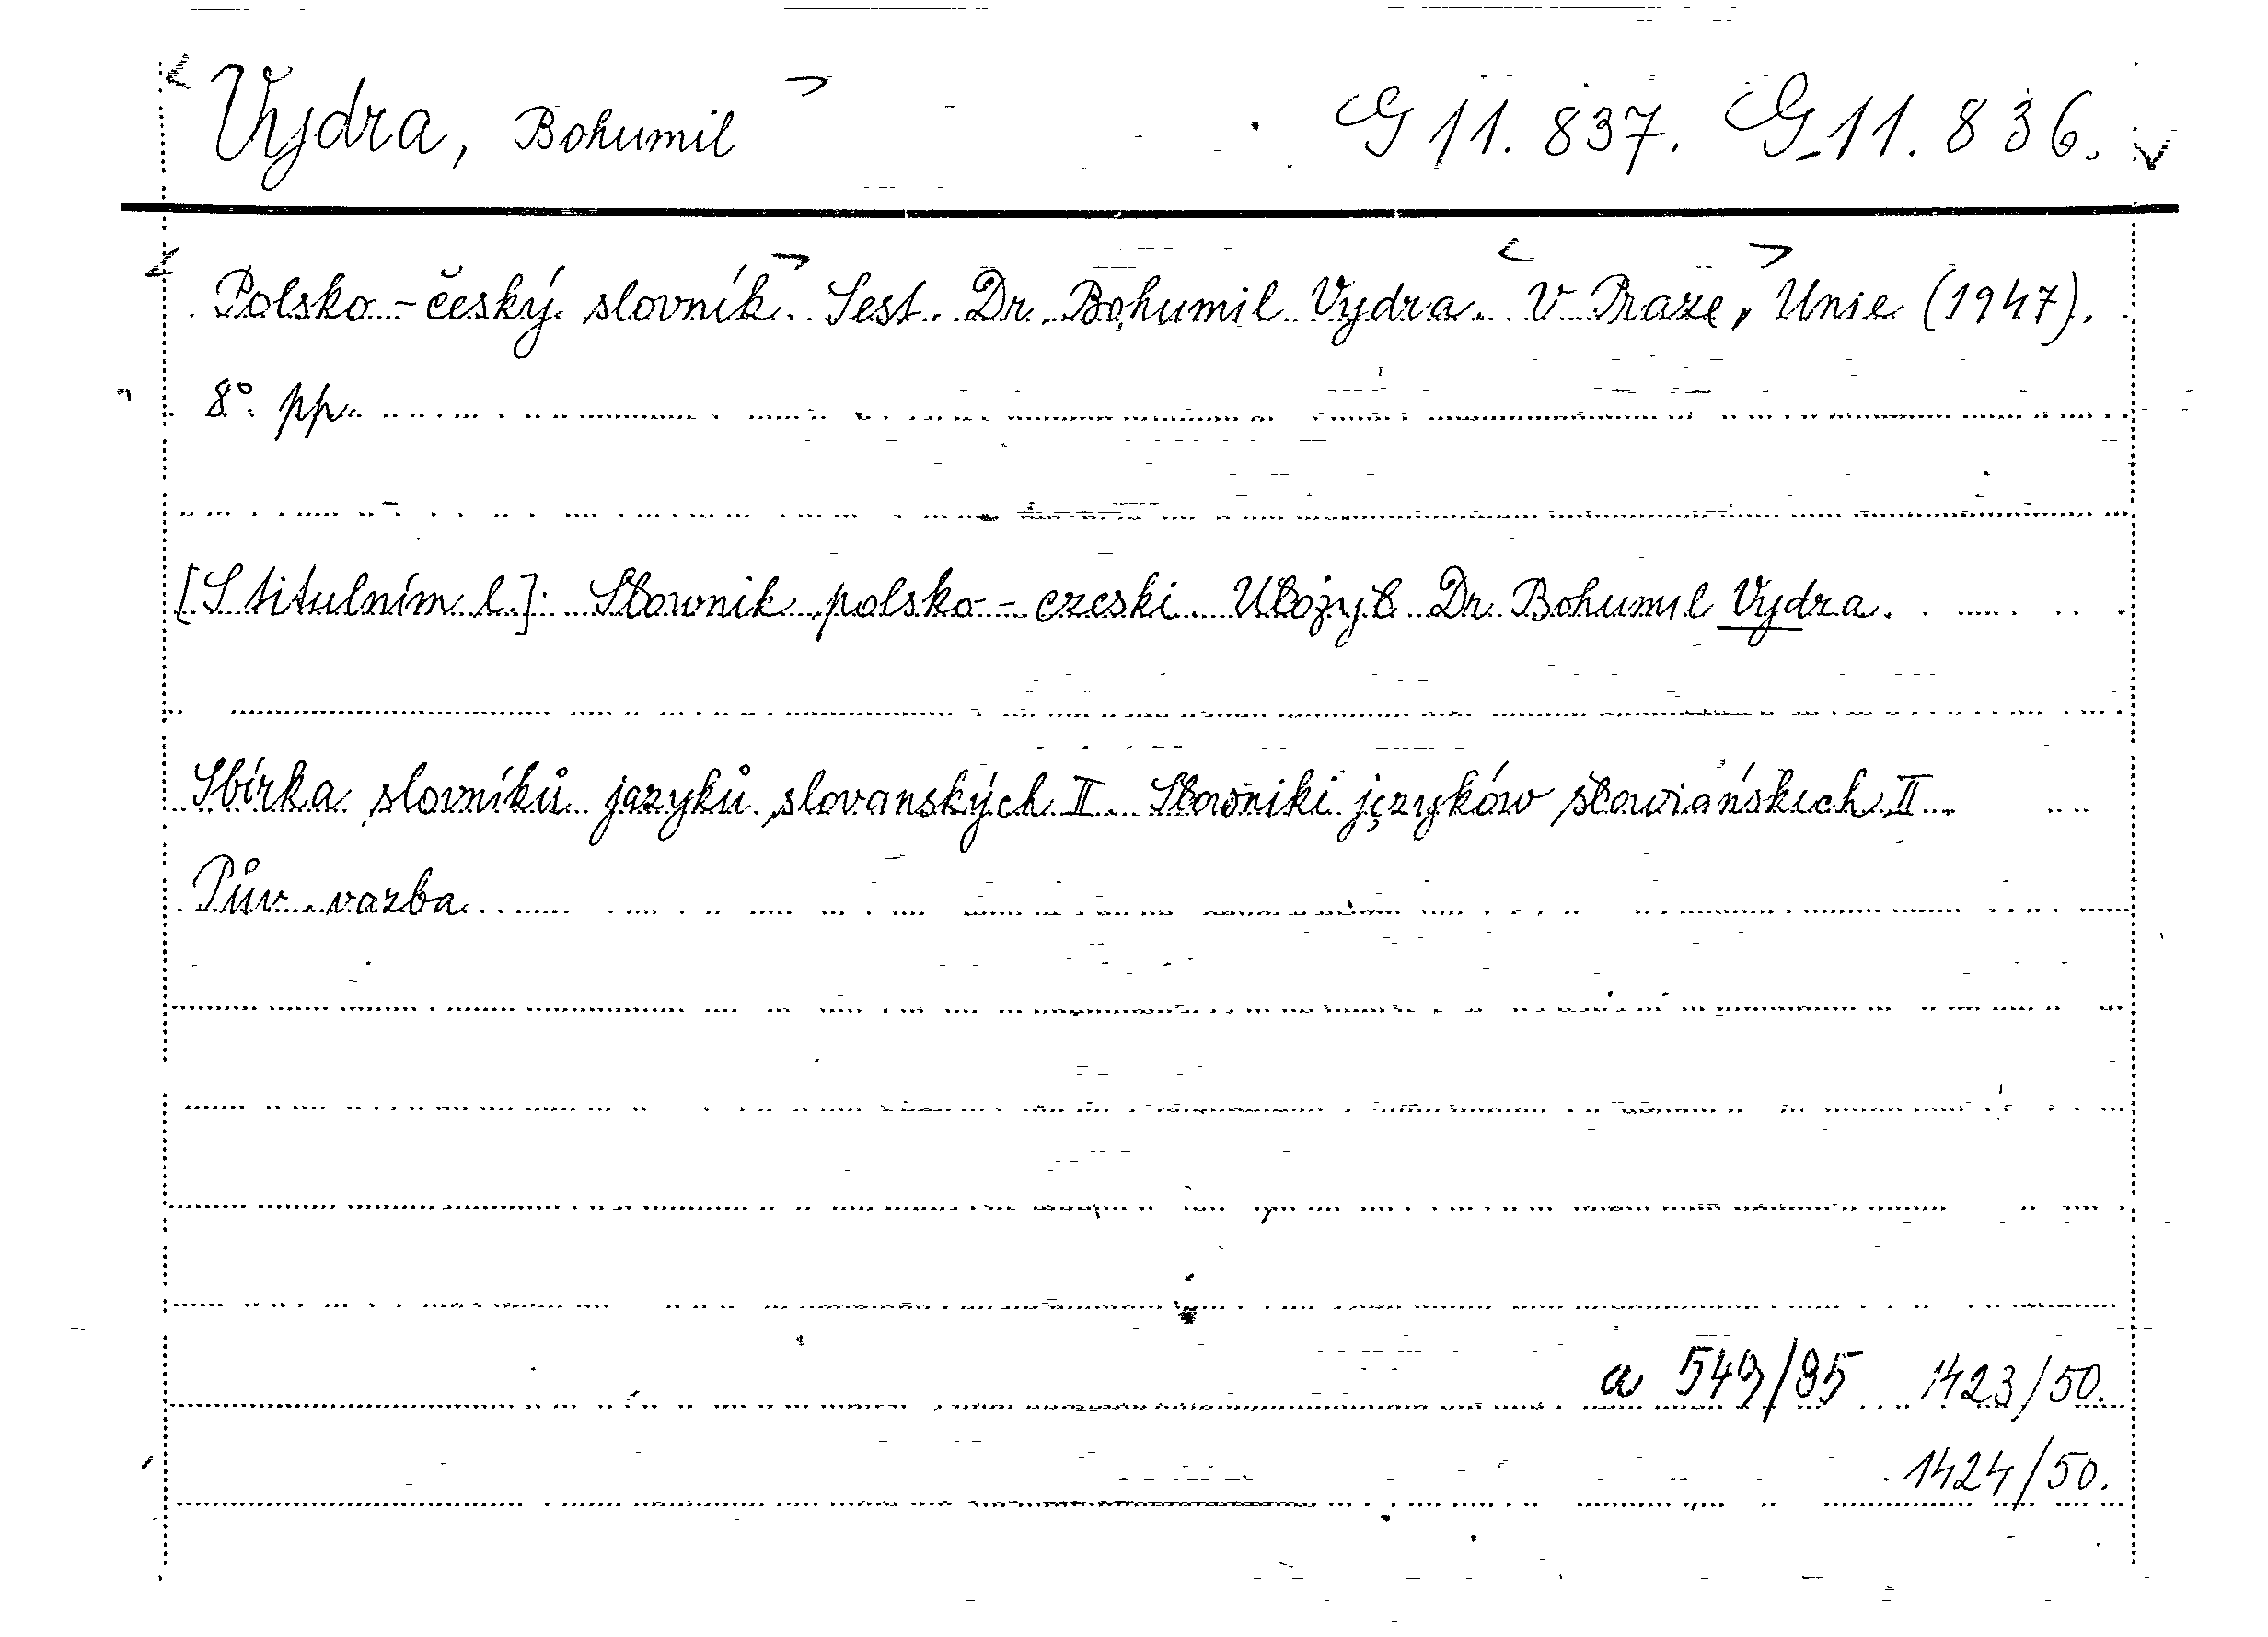 Vydra, Bohumil G 11.837. G 11.836.
Polsko-český slovník. Sest. Dr. Bohumil Vydra. V Praze, Unie (1947).
8°. pp.
[S titulním l.]: Słownik polsko-czeski. Ułożył Dr. Bohumil Vydra.
Sbírka slovníků jazyků slovanských II. Słowniki języków słowiańskich II.
Pův. vazba
a 549/85 1423/50.
1424/50.